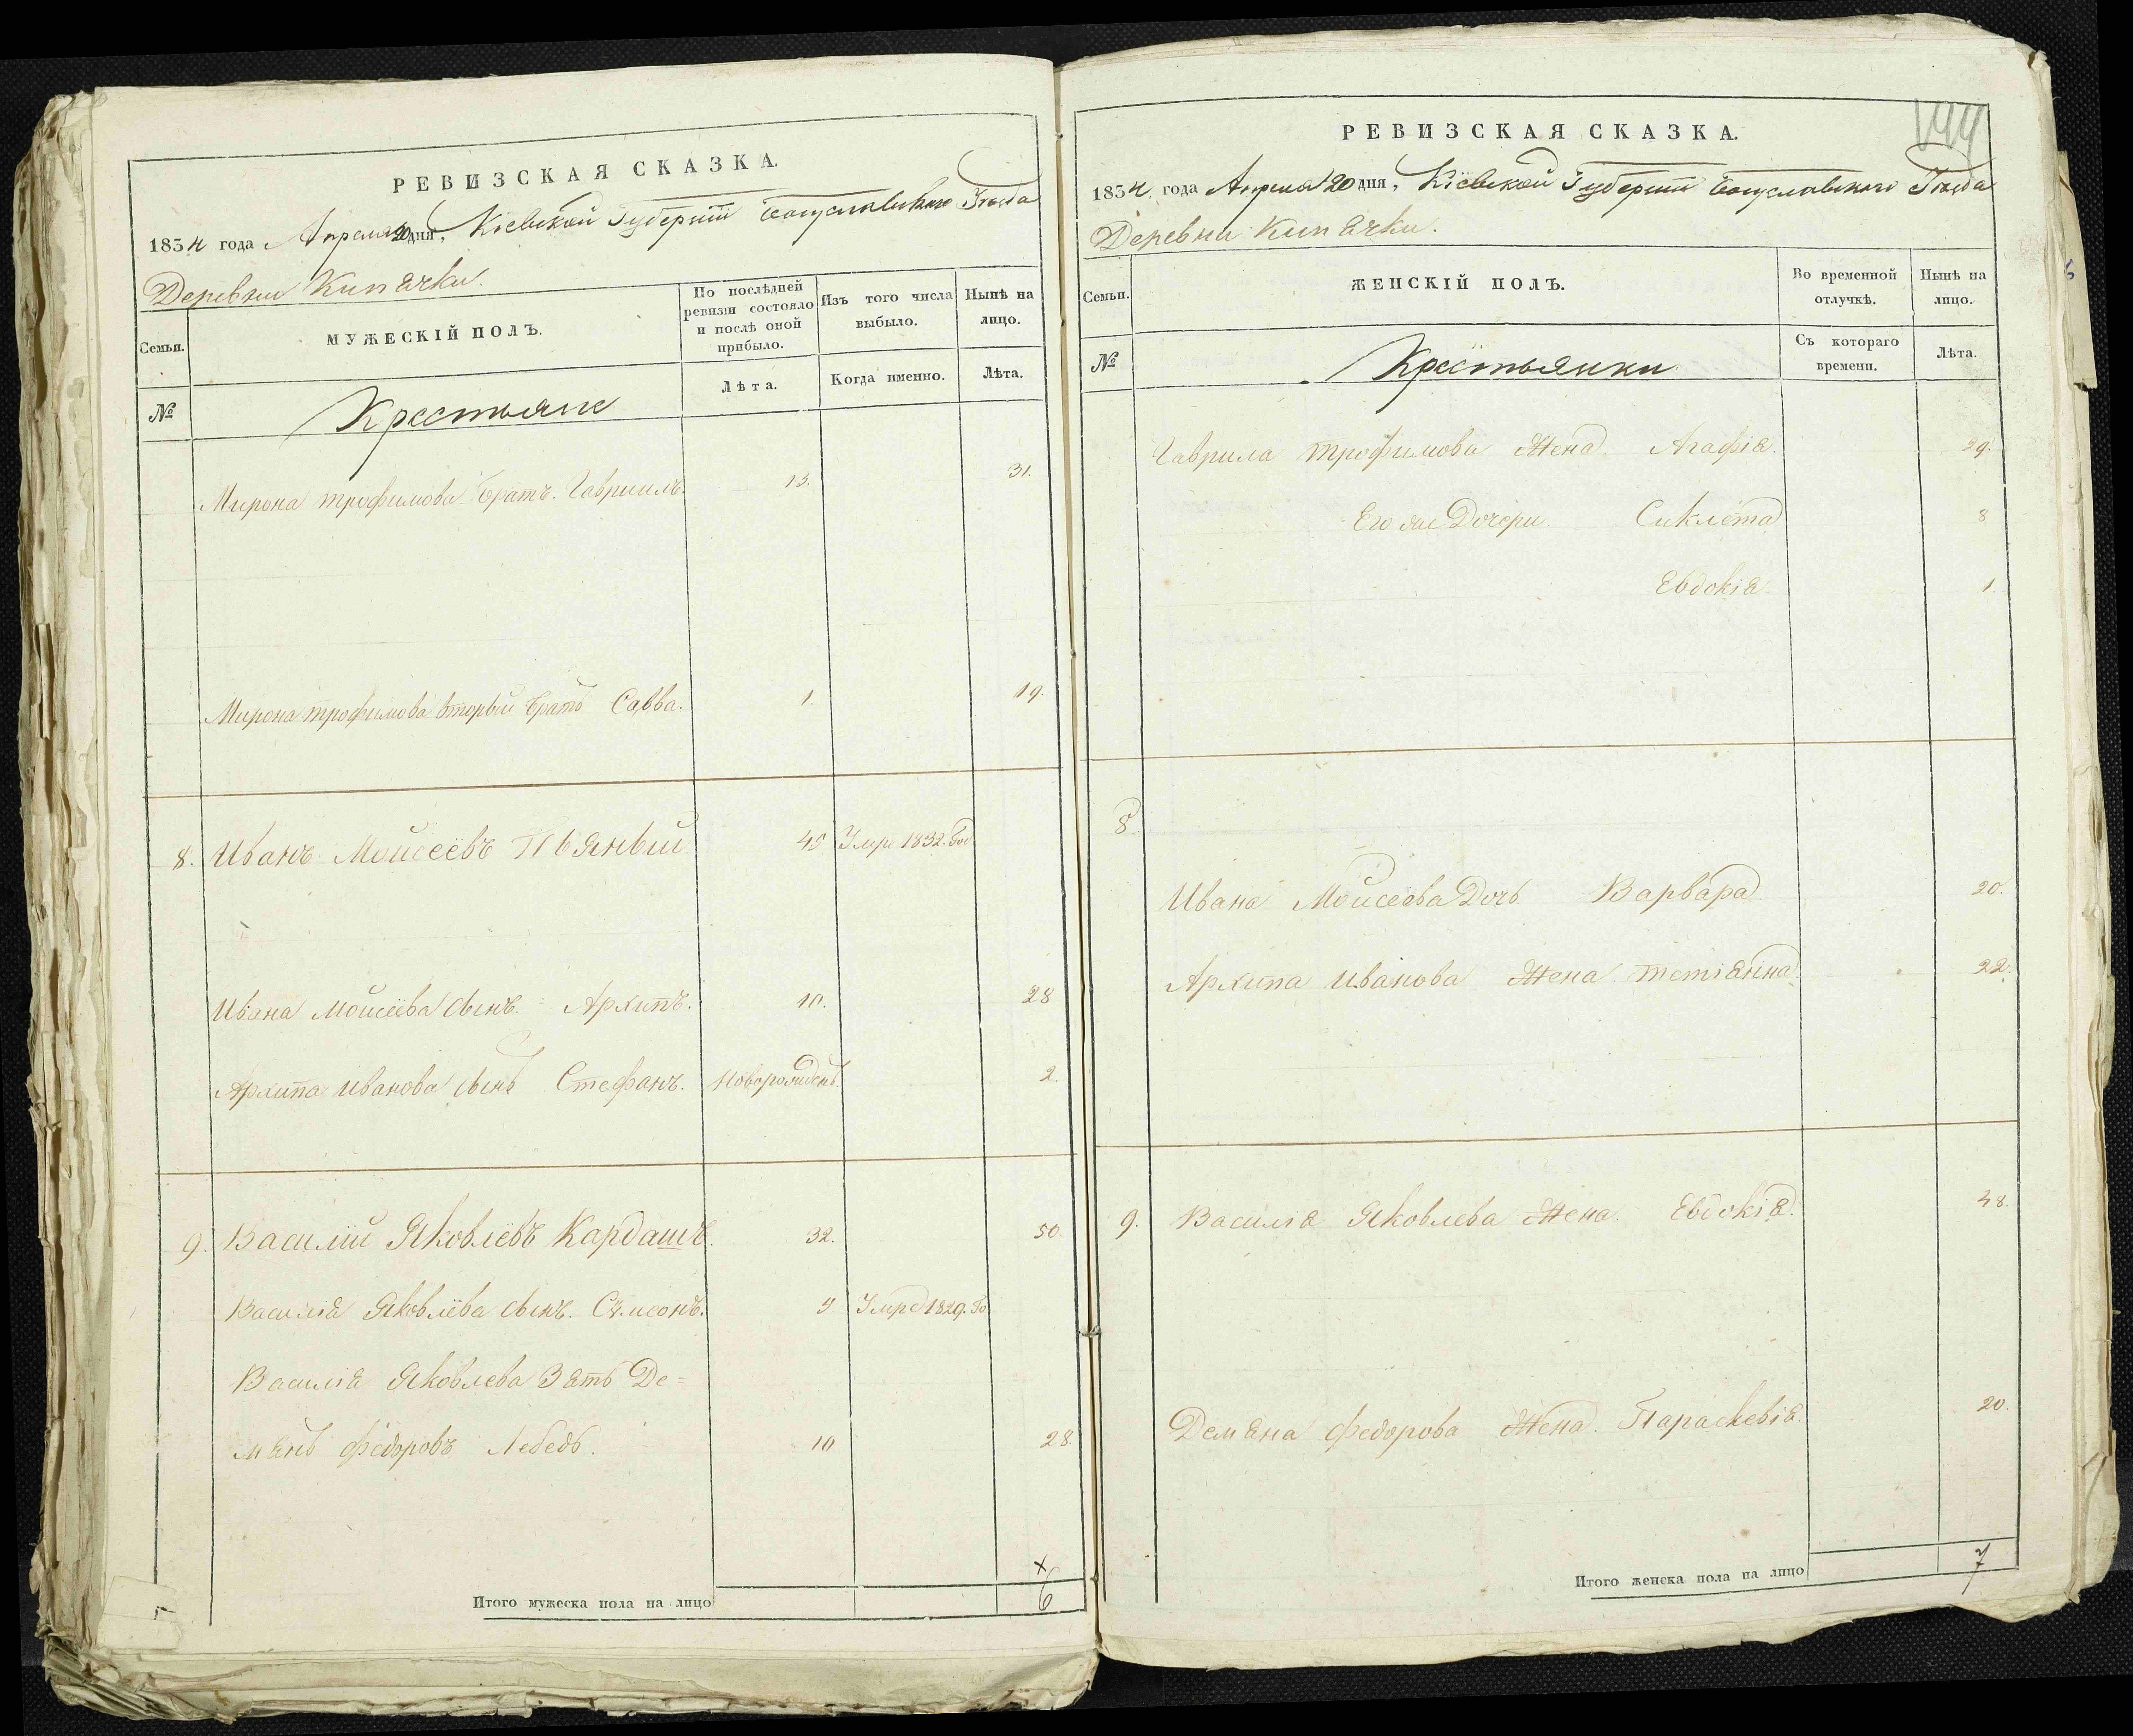 РЕВИЗСКАЯ СКАЗКА.
1834 года Апреля 20 дня, Кіевской Губерніи Богуславскаго Уезда
Деревни Кипячки.
Семьи.
МУЖЕСКІЙ ПОЛЪ.
По послѣдней ревизіи состояло и послѣ оной прибыло.
Изъ того числа выбыло.
Нынѣ на лицо.
№
Крестьяне
Лѣта.
Когда именно.
Лѣта.
Мирона трофимова братъ. Гавриилъ. 13. 31.
Мирона трофимова вторый братъ Савва. 1. 19.
8. Иванъ Моисеевъ Пьяный 45 Умре 1832. Год
Ивана Моисеева сынъ. Архипъ. 10. 28
Архипа Иванова сынъ Стефанъ. Новорожденъ 2.
9. Василій Яковлевъ Кардашъ. 32. 50
Василія Яковлева сынъ. Сѵмеонъ. 5 Умре 1829. Го
Василія Яковлева Зять Де=
мянъ Федоровъ Лебедь. 10 28.
Итого мужеска пола на лицо 6
144
РЕВИЗСКАЯ СКАЗКА.
1834 года Апреля 20 дня, Кіевской Губерніи Богуславскаго Уезда
Деревни Кипячки.
Семьи.
ЖЕНСКІЙ ПОЛЪ.
Во временной отлучкѣ.
Нынѣ на лицо.
№
Крестьянки
Съ котораго времени.
Лѣта.
Гаврила трофимова Жена Агафія. 29.
Его же Дочери Сиклета 8
Евдокія. 1
8.
Ивана Моисеева Дочь Варвара 20.
Архипа Иванова Жена тетіянна. 22.
9. Василія Яковлева Жена. Евдокія. 48.
Демяна Федорова Жена. Параскевія. 20.
Итого женска пола на лицо 7